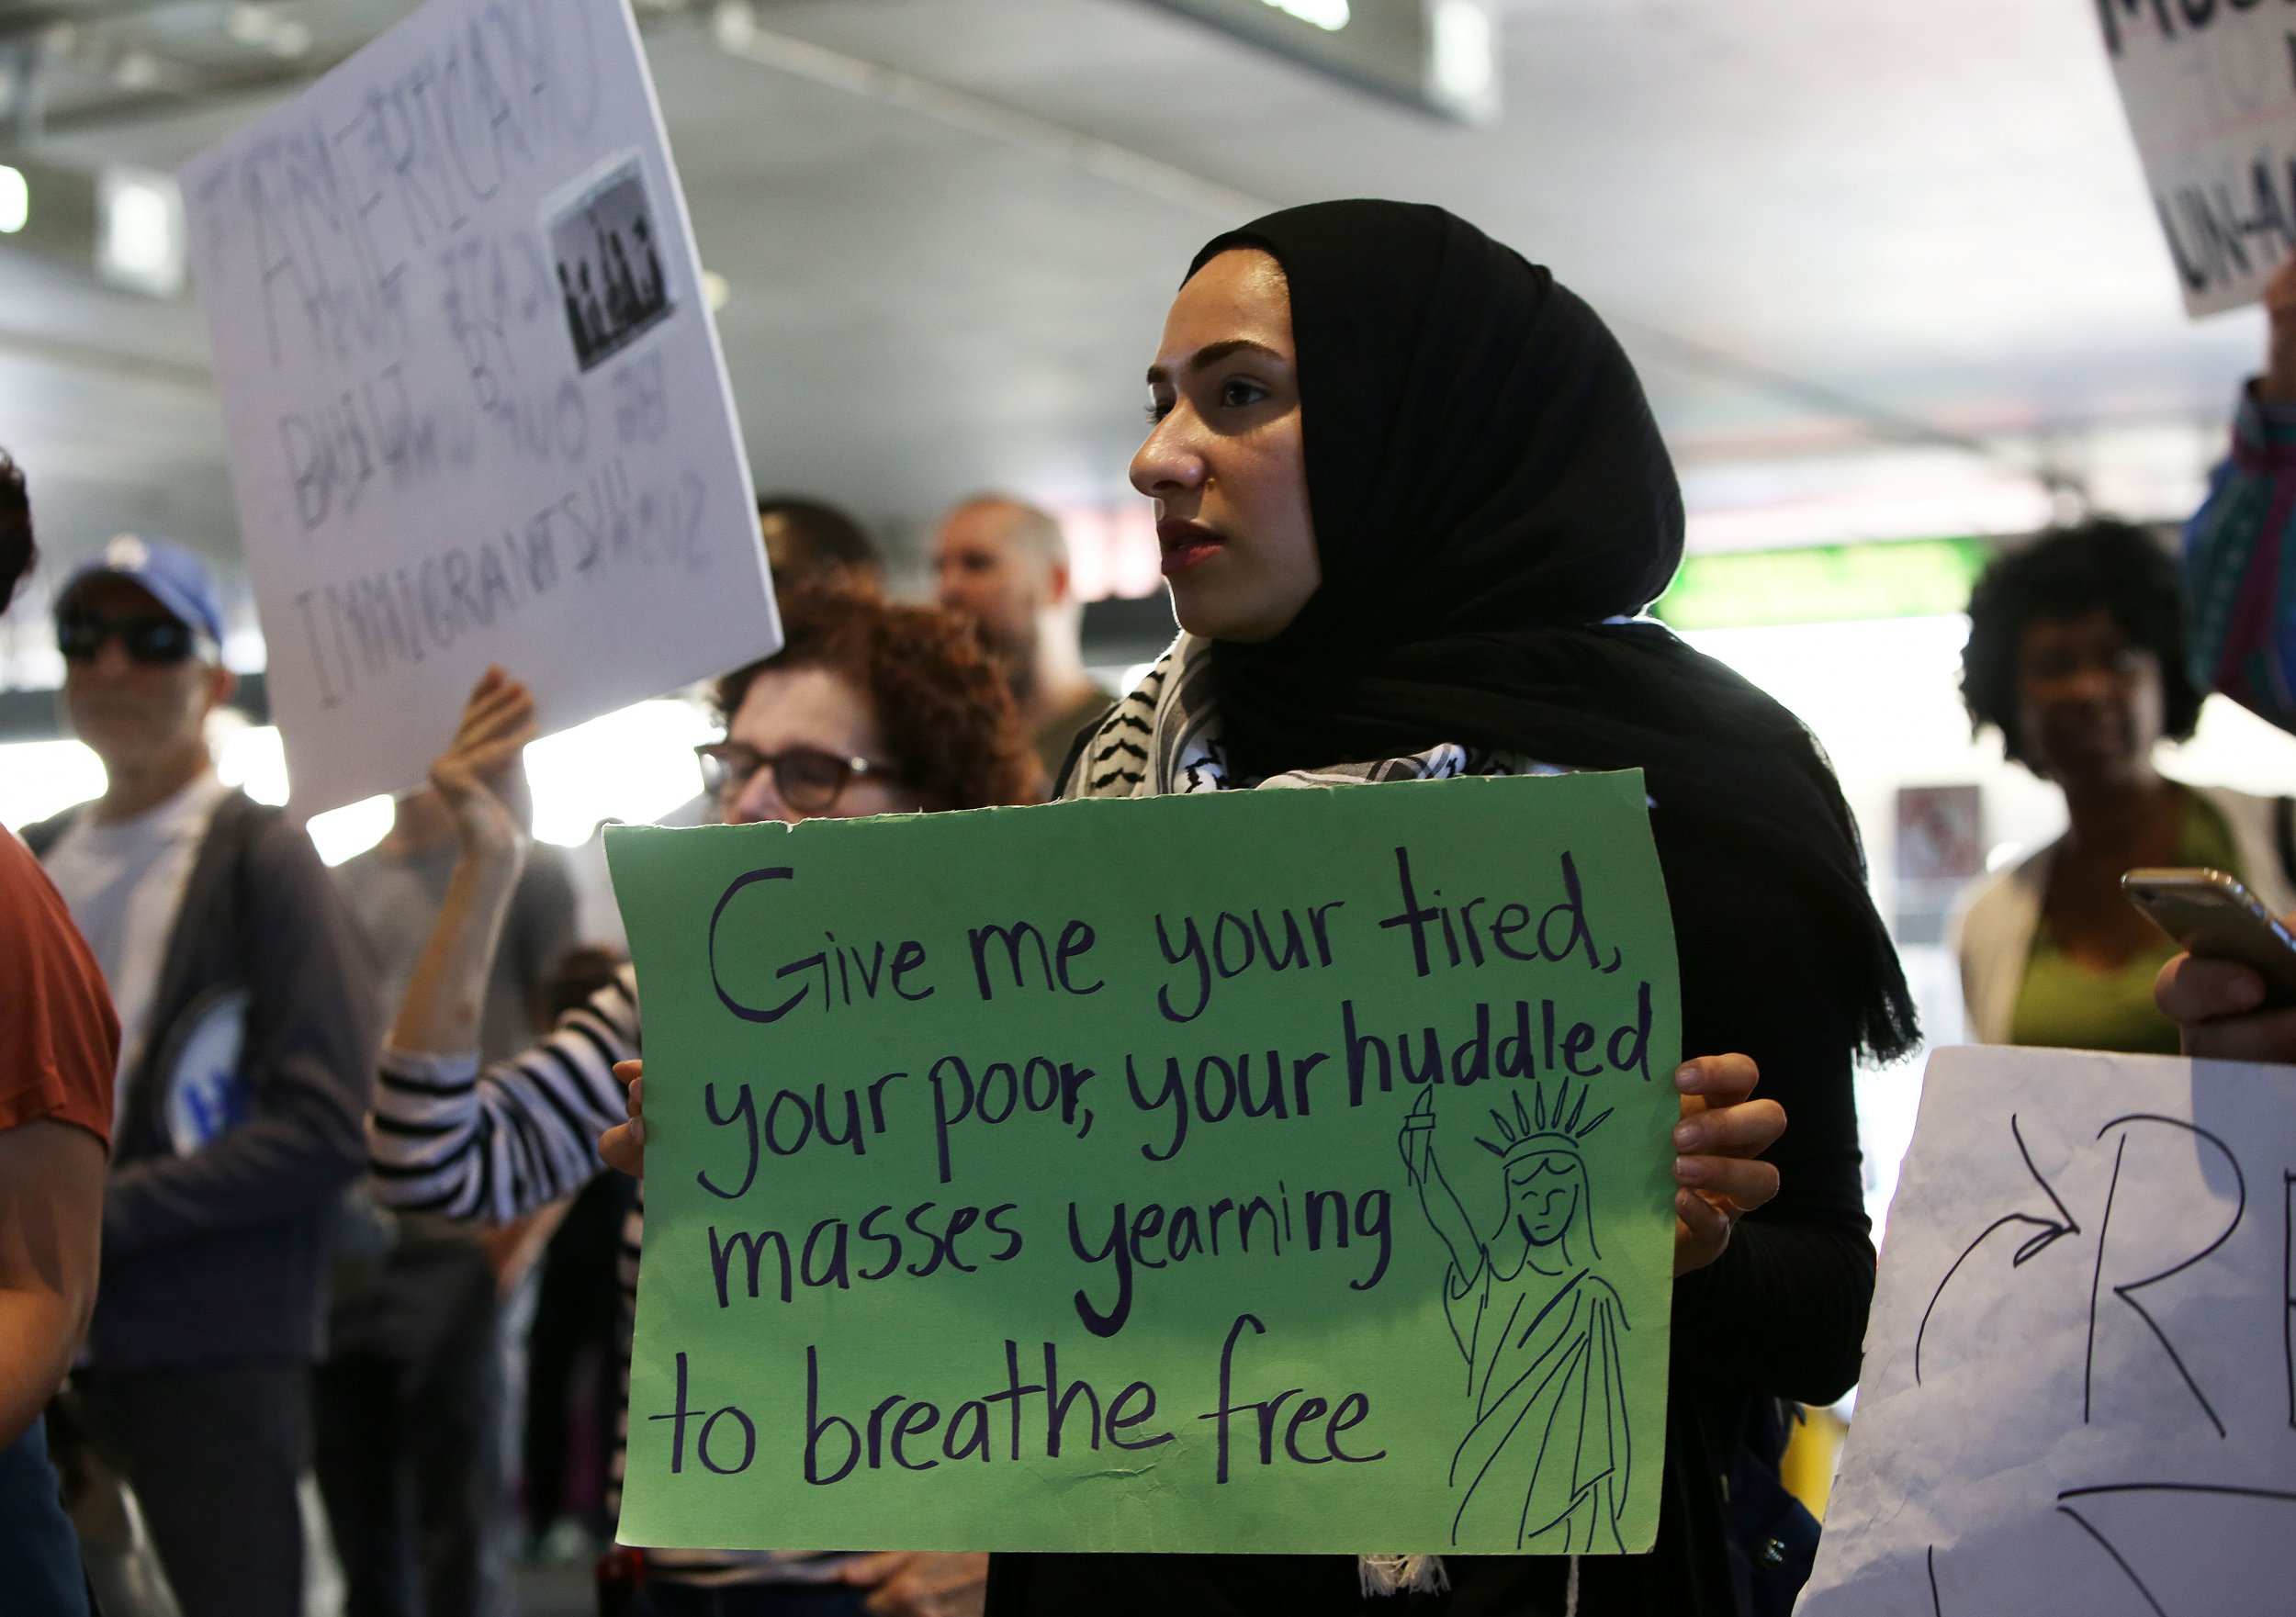 AMERICA
BUILT BY
IMMIGRANTS!!!
UN-A
Give me your tired,
your poor, your huddled
masses yearning
to breathe free
R